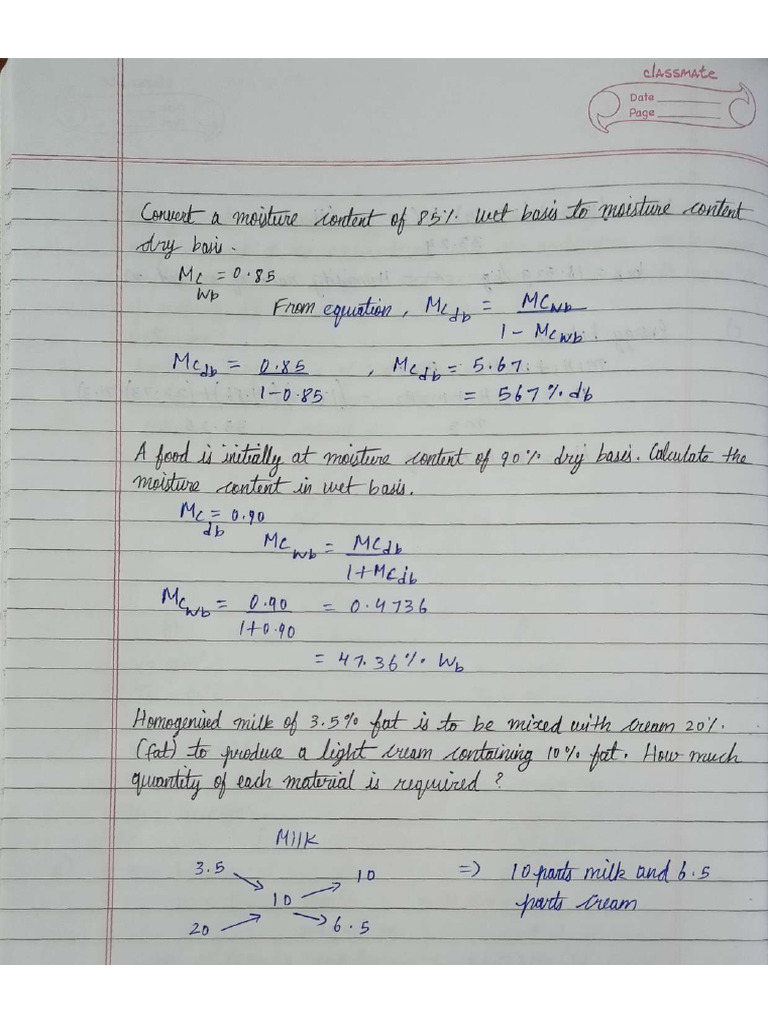 classmate
Date
Page
Convert a moisture content of 85% wet basis to moisture content
dry basis.
Mc wb = 0.85
From equation, Mc db = MC wb / 1 - Mc wb.
Mc db = 0.85 / 1-0.85 , Mc db = 5.67.
= 567% db
A food is initially at moisture content of 90% dry basis. Calculate the
moisture content in wet basis.
Mc db = 0.90
Mc wb = MC db / 1+Mc db
Mc wb = 0.90 / 1+0.90 = 0.4736
= 47.36% Wb
Homogenised milk of 3.5% fat is to be mixed with cream 20%.
(fat) to produce a light cream containing 10% fat. How much
quantity of each material is required?
Milk
3.5 10 => 10 parts milk and 6.5
10 parts cream
20 6.5